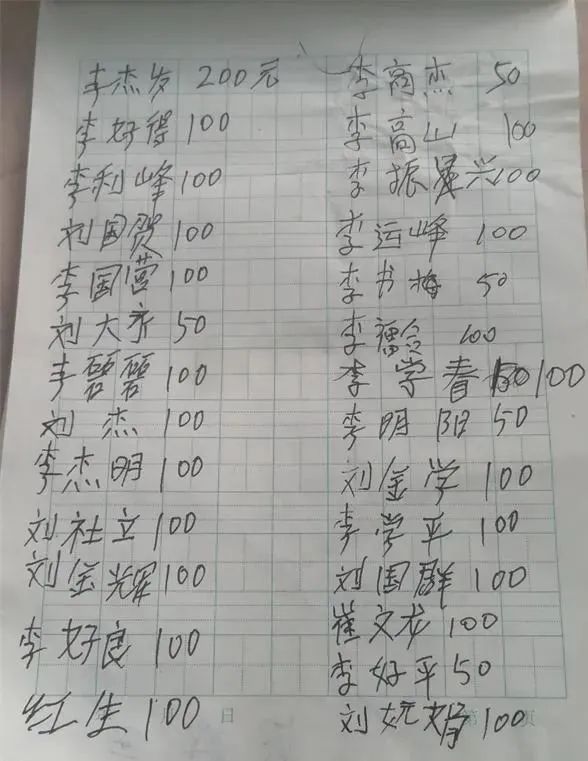 李杰发 200元
李好得 100
李利峰 100
刘国贺 100
李国营 100
刘大永 50
李碧碧 100
刘杰 100
李杰明 100
刘社立 100
刘金辉 100
李好良 100
红生 100
李高杰 50
李高山 100
李振兴 100
李运峰 100
李书梅 50
李 100
李学春 100
李明阳 50
刘金学 100
李学平 100
刘国群 100
崔文龙 100
李好平 50
刘 100